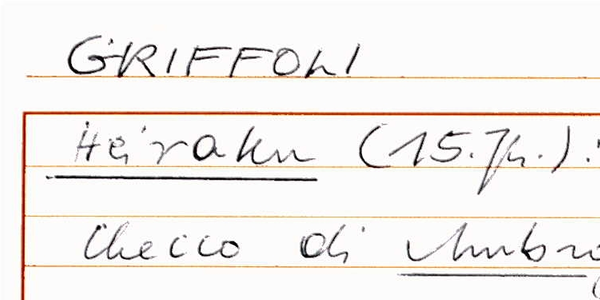 GRIFFOLI
Heiraten (15. Jh.):
Checco di Ambro